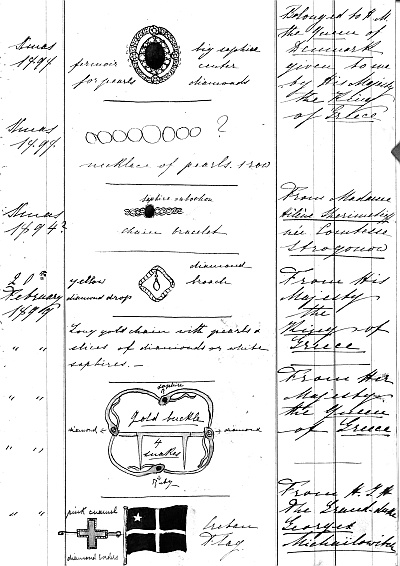 Xmas
1894
fermoir
for pearls
big saphire
center
diamonds
Belonged to H. M.
the Queen of
Denmark
given to me
by His Majesty
the King
of Greece
Xmas
1894
?
necklace of pearls. 1 row
Xmas
1894?
saphire cabochon
chain bracelet
From Madame
Hélène Sherimetieff
née Comtesse
Strogonow
20th
February
1899
yellow
diamond drops
diamond
broach
From His
Majesty
the
King of
Greece
" "
Long gold chain with pearls &
slices of diamonds or white
saphires. —
" "
saphire
gold buckle
diamond
diamond
4
snakes
Ruby
From Her
Majesty
the Queen
of Greece
" "
" "
pink enamel
diamond borders
Cretan
Flag
From H. I. H.
The Grand duke
Georges
Michailowitch